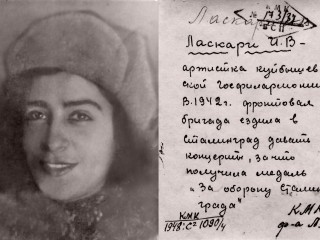 Ласкари
КМК
173/32
Ласкари И.В -
артистка куйбышев
ской госфилармонии
В.1942г. фронтовая
бригада ездила в
Сталинград давать
концерты, за что
получила медаль
"За оборону Сталин
града"
КМК
КМК
1948: с2 1090/4
ф-а Л.